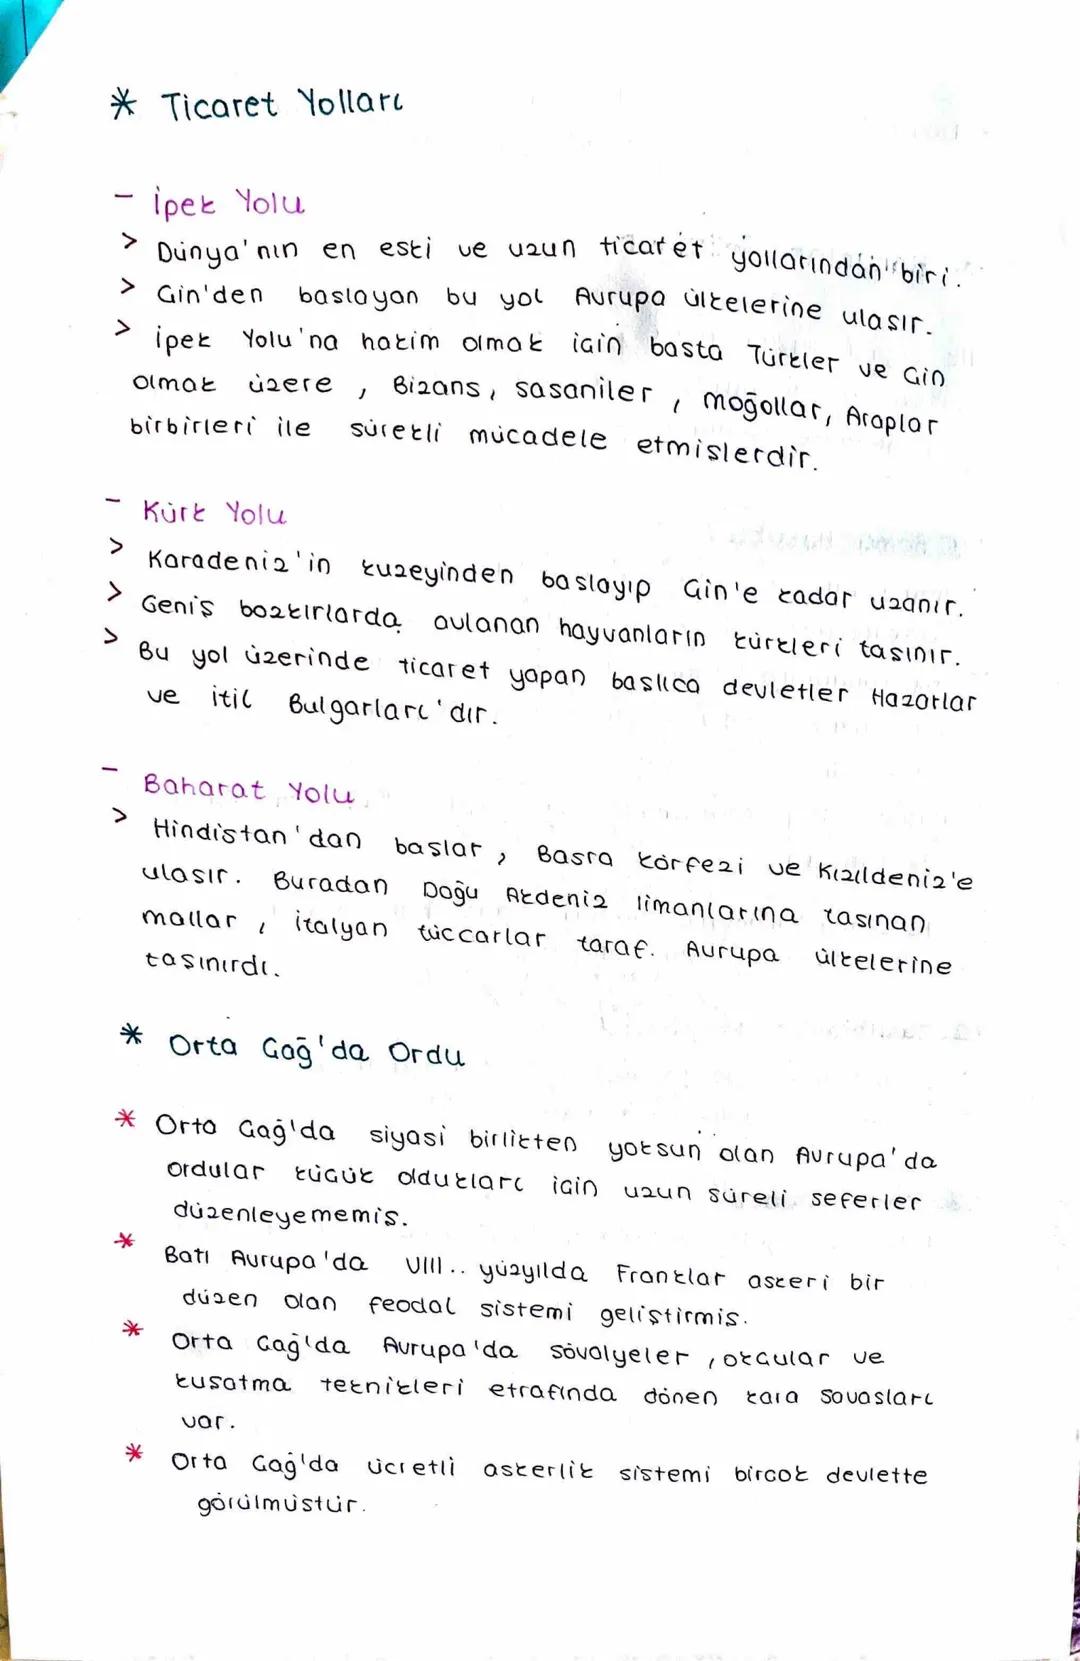 * Ticaret Yolları
- İpek Yolu
> Dünya'nın en eski ve uzun ticaret yollarından biri.
> Çin'den başlayan bu yol Avrupa ülkelerine ulaşır.
> İpek Yolu'na hakim olmak için başta Türkler ve Çin
olmak üzere, Bizans, sasaniler, moğollar, Araplar
birbirleri ile sürekli mücadele etmişlerdir.
- Kürk Yolu
> Karadeniz'in kuzeyinden başlayıp Çin'e kadar uzanır.
> Geniş bozkırlarda avlanan hayvanların kürkleri taşınır.
> Bu yol üzerinde ticaret yapan başlıca devletler Hazarlar
ve itil Bulgarları'dır.
- Baharat Yolu
> Hindistan'dan başlar, Basra körfezi ve Kızıldeniz'e
ulaşır. Buradan Doğu Akdeniz limanlarına taşınan
mallar, italyan tüccarlar taraf. Avrupa ülkelerine
taşınırdı.
* Orta Çağ'da Ordu
* Orta Çağ'da siyasi birlikten yoksun olan Avrupa'da
ordular küçük oldukları için uzun süreli seferler
düzenleyememiş.
* Batı Avrupa'da VIII.. yüzyılda Franklar askeri bir
düzen olan feodal sistemi geliştirmiş.
* Orta Çağ'da Avrupa'da şövalyeler, okçular ve
kuşatma teknikleri etrafında dönen kara savaşları
var.
* Orta Çağ'da ücretli askerlik sistemi birçok devlette
görülmüştür.